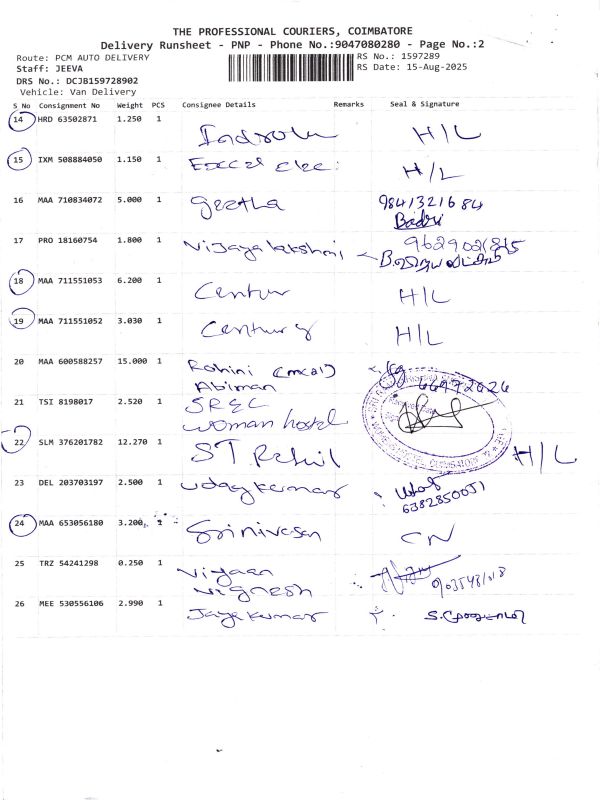 THE PROFESSIONAL COURIERS, COIMBATORE
Delivery Runsheet - PNP - Phone No.:9047080280 - Page No.:2
Route: PCM AUTO DELIVERY RS No.: 1597289
Staff: JEEVA RS Date: 15-Aug-2025
DRS No.: DCJB159728902
Vehicle: Van Delivery
S No Consignment No Weight PCS Consignee Details Remarks Seal & Signature
14 HRD 63502871 1.250 1 H/L
15 IXM 508884050 1.150 1 Excel elec: H/L
16 MAA 710834072 5.000 1 geetha 9841321684
Badri
17 PRO 18160754 1.800 1 Vijayalakshmi
18 MAA 711551053 6.200 1 Centur H/L
19 MAA 711551052 3.030 1 Century H/L
20 MAA 600588257 15.000 1 Rohini (mcal)
Abiman
21 TSI 8198017 2.520 1 SREC
woman hostel
22 SLM 376201782 12.270 1 ST H/L
23 DEL 203703197 2.500 1 udaykumar
6382850051
24 MAA 653056180 3.200 1 Srinivasan CN
25 TRZ 54241298 0.250 1 Viyaan
Vignesh
26 MEE 530556106 2.990 1 Jayakumar